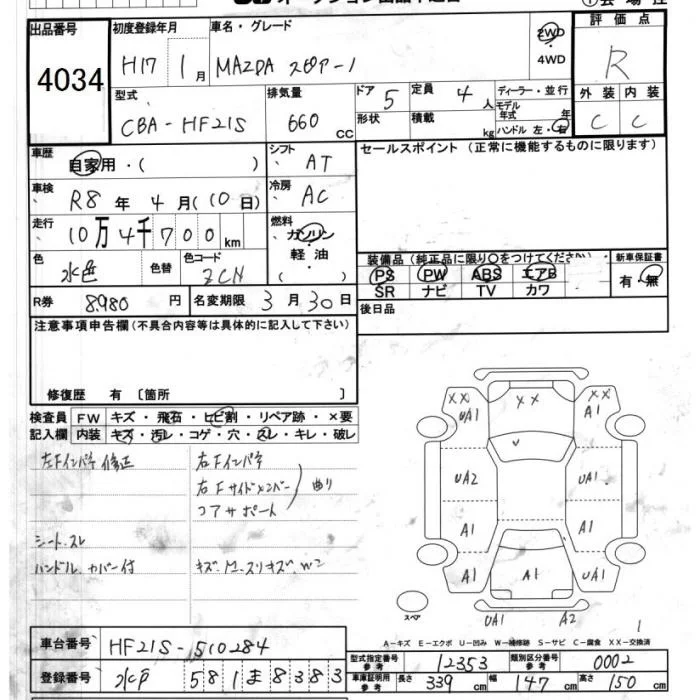 出品番号
4034
初度登録年月
H17 1月
車名・グレード
MAZDA スピアーノ
2WD
・
4WD
評価点
R
外装 内装
C C
型式
CBA-HF21S
排気量
660 CC
ドア 5
定員 4人
形状
積載 kg
ディーラー・並行
モデル年式 年
ハンドル 左・右
車歴
自家用・( )
シフト AT
セールスポイント (正常に機能するものに限ります)
車検
R8年4月(10日)
冷房 AC
走行
10万4千700km
燃料
ガソリン
軽油
( )
色
水色
色替
色コード
ZCN
装備品(純正品に限り○をつけてください)
PS PW ABS エアB
SR ナビ TV カワ
新車保証書
有・無
R券 8,980円
名変期限 3月30日
後日品
注意事項申告欄(不具合内容等は具体的に記入して下さい)
修復歴 有 〔箇所 〕
検査員記入欄
FW キズ・飛石・ヒビ割・リペア跡・×要
内装 キズ・汚レ・コゲ・穴・スレ・キレ・破レ
左Fインパネ修正
右Fインパネ
右Fサイドメンバー
コアサポート
曲り
シート.スレ
ハンドル.カバー付
キズ.M.スリキズ.W2
XX
UA1
XX
XX
A1
UA2
UA1
A1
A1
A1
A1
UA1
スペア
UA1
A2
1
A-キズ E-エクボ U-凹み W-補修跡 S-サビ C-腐食 XX-交換済
車台番号
HF21S-510284
登録番号
水戸 581 ま 8383
型式指定番号 参考 12353
類別区分番号 参考 0002
車庫証明用 参考 長さ 339cm 幅 147cm 高さ 150cm